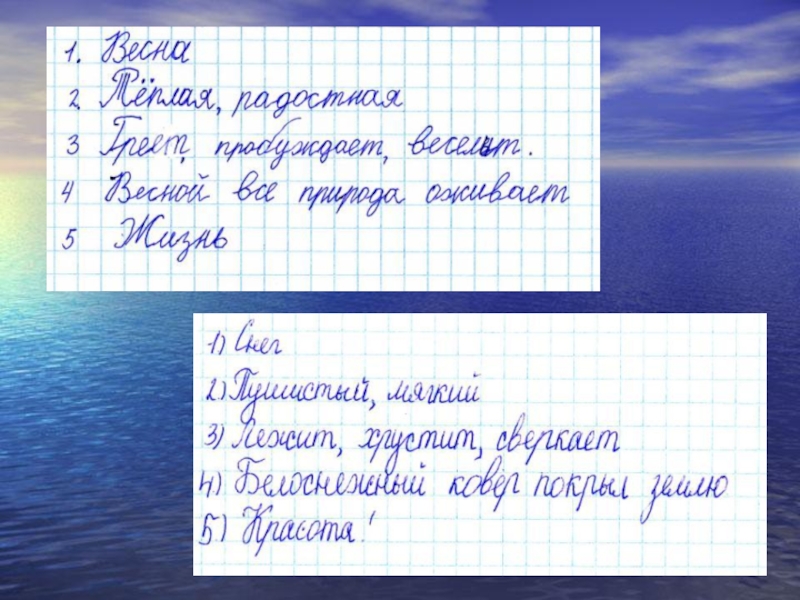 1. Весна
2. Тёплая, радостная
3 Греет, пробуждает, веселит.
4 Весной все природа оживает
5 Жизнь
1) Снег
2) Пушистый, мягкий
3) Лежит, хрустит, сверкает
4) Белоснежный ковёр покрыл землю
5) Красота!